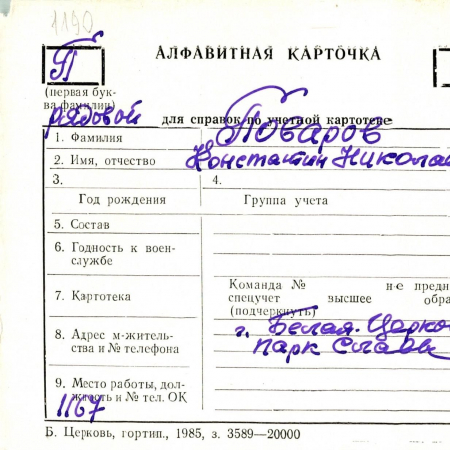 1190
АЛФАВИТНАЯ КАРТОЧКА
П
(первая бук-
ва фамилии)
рядовой для справок по учетной картотеке
1. Фамилия Поваров
2. Имя, отчество Константин Николай
3. 4.
Год рождения Группа учета
5. Состав
6. Годность к воен-
службе
Команда № н-е предн
7. Картотека спецучет высшее обра
(подчеркнуть)
8. Адрес м-житель- г. Белая-Церко
ства и № телефона парк Славы
9. Место работы, дол-
жность и № тел. ОК
1167
Б. Церковь, гортип., 1985, з. 3589—20000